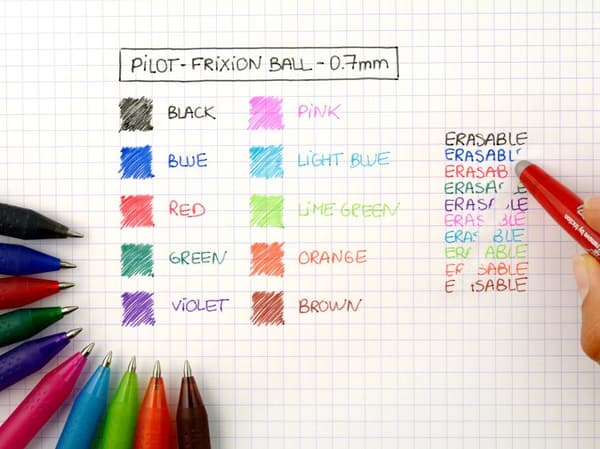 PILOT - FRIXION BALL - 0.7mm
BLACK
BLUE
RED
GREEN
VIOLET
PINK
LIGHT BLUE
LIME GREEN
ORANGE
BROWN
ERASABLE
ERASABL
ERASAB
ERASA LE
ERASA BLE
ERAS ABLE
ERA ABLE
ER ABLE
ER SABLE
E SABLE
remove by friction